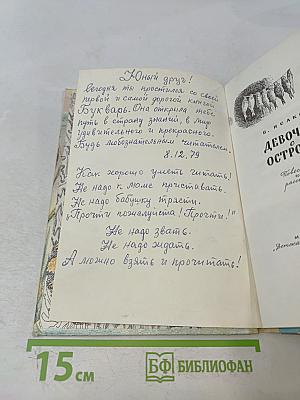 Юный друг!
Сегодня ты простился со своей
первой и самой дорогой книгой
Букварь. Она открыла тебе
путь в страну знаний, в мир
удивительного и прекрасного.
Будь любознательным читателем.
8.12.79
Как хорошо уметь читать!
Не надо к маме приставать.
Не надо бабушку трясти.
"Прочти пожалуйста! Прочти!"
Не надо звать.
Не надо ждать.
А можно взять и прочитать!
ДЕВОЧ
ОСТРО
15 см
БФ БИБЛИОФАН